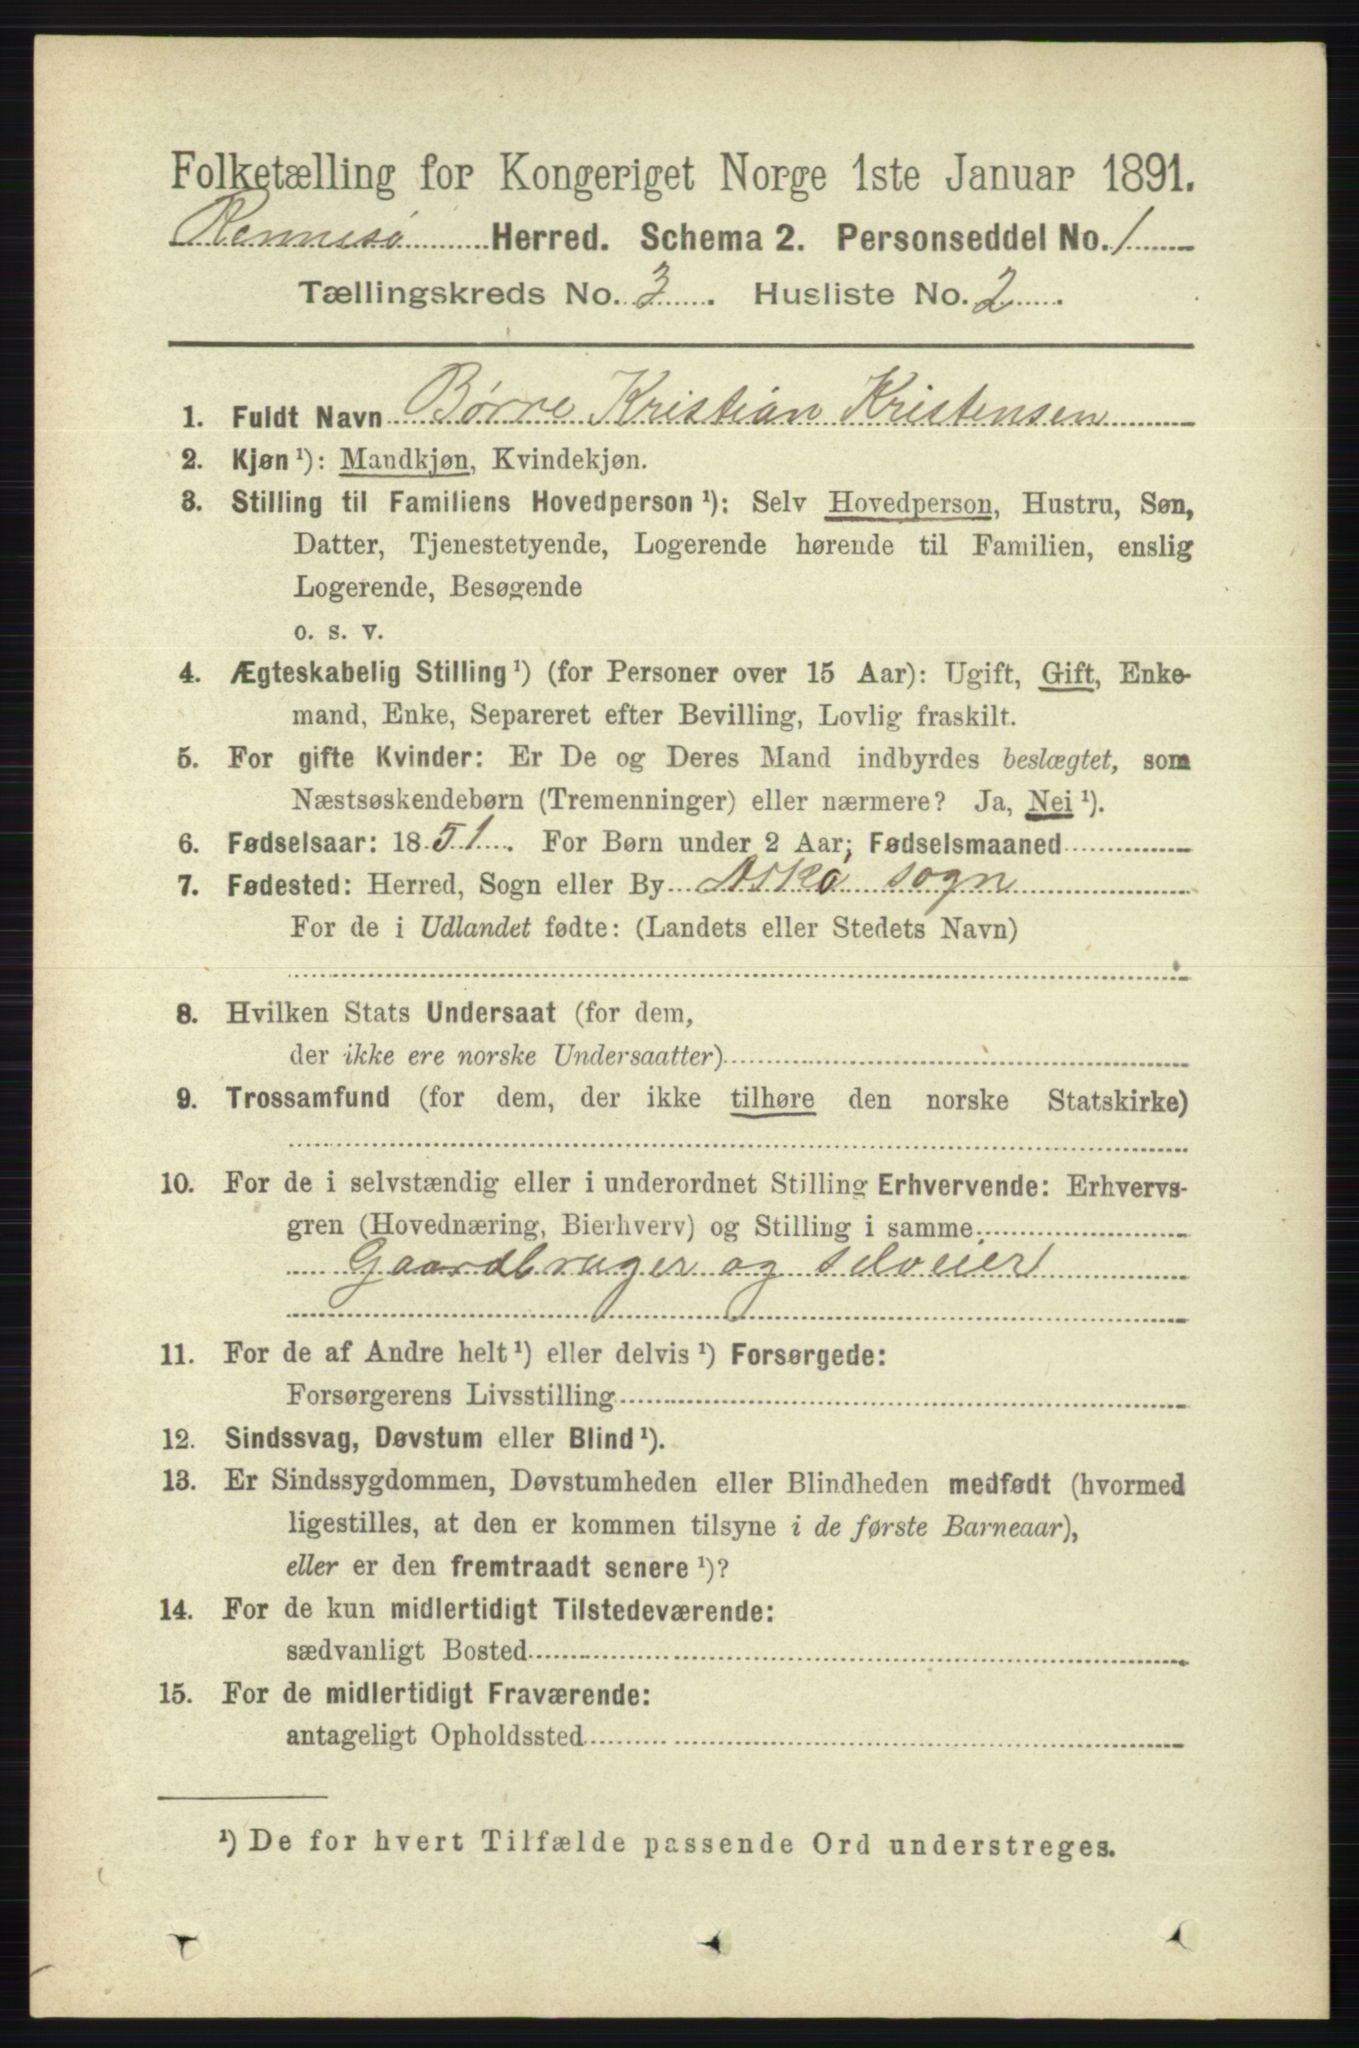 Folketælling for Kongeriget Norge 1ste Januar 1891.
Rennesø Herred. Schema 2. Personseddel No. 1
Tællingskreds No. 3. Husliste No. 2.
1. Fuldt Navn Børre Kristian Kristensen
2. Kjøn ¹): Mandkjøn, Kvindekjøn.
3. Stilling til Familiens Hovedperson ¹): Selv Hovedperson, Hustru, Søn,
Datter, Tjenestetyende, Logerende hørende til Familien, enslig
Logerende, Besøgende
o. s. v.
4. Ægteskabelig Stilling ¹) (for Personer over 15 Aar): Ugift, Gift, Enke-
mand, Enke, Separeret efter Bevilling, Lovlig fraskilt.
5. For gifte Kvinder: Er De og Deres Mand indbyrdes beslægtet, som
Næstsøskendebørn (Tremenninger) eller nærmere? Ja, Nei ¹).
6. Fødselsaar: 1851. For Børn under 2 Aar; Fødselsmaaned
7. Fødested: Herred, Sogn eller By Askø sogn
For de i Udlandet fødte: (Landets eller Stedets Navn)
8. Hvilken Stats Undersaat (for dem,
der ikke ere norske Undersaatter)
9. Trossamfund (for dem, der ikke tilhøre den norske Statskirke)
10. For de i selvstændig eller i underordnet Stilling Erhvervende: Erhvervs-
gren (Hovednæring, Bierhverv) og Stilling i samme
Gaardbruger og selveier
11. For de af Andre helt ¹) eller delvis ¹) Forsørgede:
Forsørgerens Livsstilling
12. Sindssvag, Døvstum eller Blind ¹).
13. Er Sindssygdommen, Døvstumheden eller Blindheden medfødt (hvormed
ligestilles, at den er kommen tilsyne i de første Barneaar),
eller er den fremtraadt senere ¹)?
14. For de kun midlertidigt Tilstedeværende:
sædvanligt Bosted
15. For de midlertidigt Fraværende:
antageligt Opholdssted
¹) De for hvert Tilfælde passende Ord understreges.